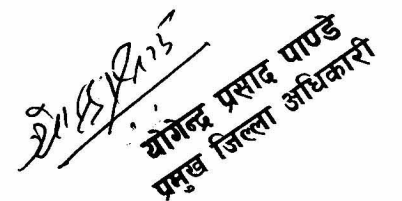 योगेन्द्र प्रसाद पाण्डे
प्रमुख जिल्ला अधिकारी